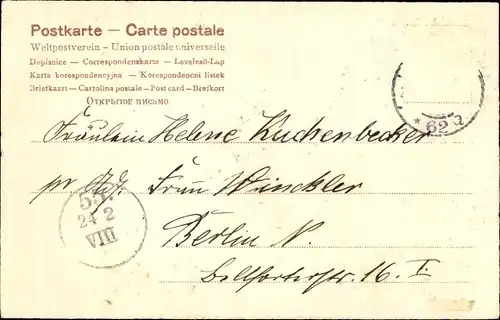 Postkarte — Carte postale
Weltpostverein - Union postale universelle
Dopisnice — Correspondenzkarte — Levelező-Lap
Karta korespondencyjna — Korespondenční lístek
Briefkaart — Cartolina postale — Post card — Brefkort
Открытое письмо
* 62 Q
Fräulein Helene Kuchenbecker
pr. Adr. Frau Winckler
Berlin N.
Belforterstr. 16 I.
24 2
VIII